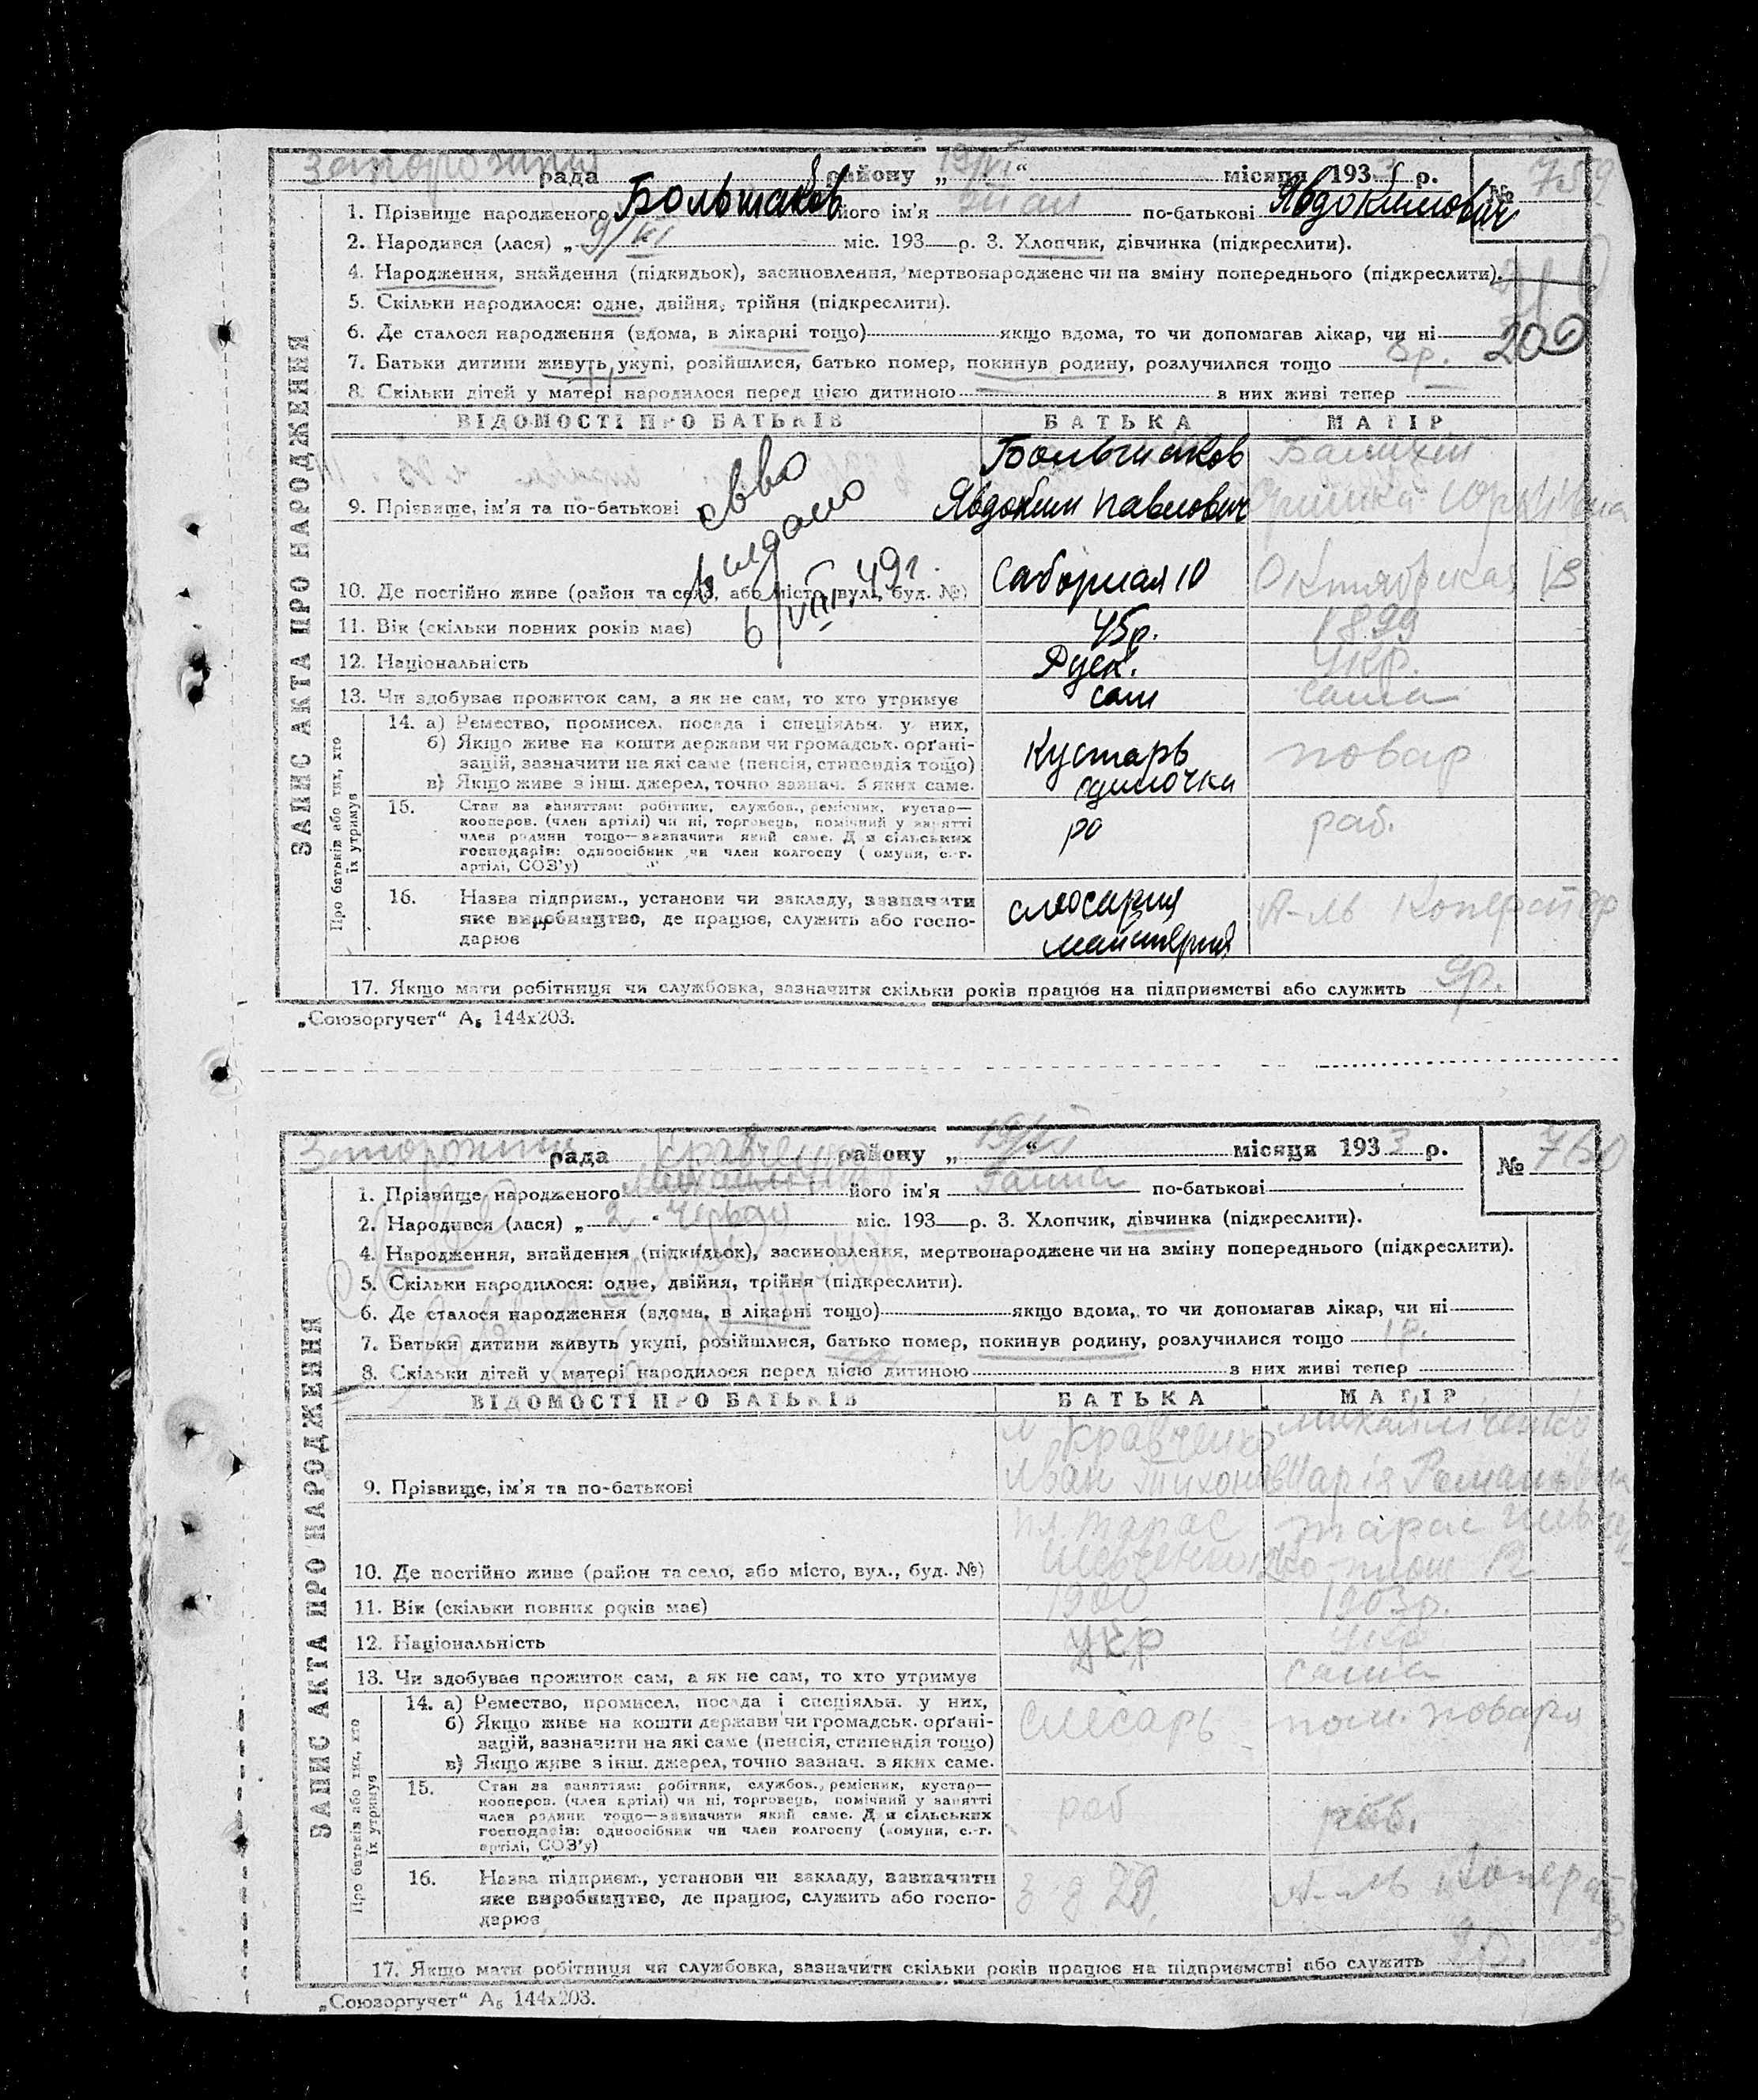 ЗАПИС АКТА ПРО НАРОДЖЕННЯ
рада району „19/VI“ місяця 1933 р. № 759
1. Прізвище народженого Большаков його ім'я по-батькові Явдокимович
2. Народився (лася) „9/VI міс. 193 р. 3. Хлопчик, дівчинка (підкреслити).
4. Народження, знайдення (підкидьок), засиновлення, мертвонароджене чи на зміну попереднього (підкреслити).
5. Скільки народилося: одне, двійня, трійня (підкреслити).
6. Де сталося народження (вдома, в лікарні тощо) якщо вдома, то чи допомагав лікар, чи ні
200
7. Батьки дитини живуть укупі, розійшлися, батько помер, покинув родину, розлучилися тощо
8. Скільки дітей у матері народилося перед цією дитиною з них живі тепер
ВІДОМОСТІ ПРО БАТЬКІВ БАТЬКА МАТІР
Большаков
9. Прізвище, ім'я та по-батькові Явдоким Павлович
видано
6/VIII 49г.
10. Де постійно живе (район та село, або місто, вул., буд. №) Саборная 10 Октябрская 13
11. Вік (скільки повних років має) 45р. 1899
12. Національність Руск. Укр.
13. Чи здобуває прожиток сам, а як не сам, то хто утримує сам сама
Про батьків або тих, хто їх утримує
14. а) Ремество, промисел, посада і спеціяльн. у них,
б) Якщо живе на кошти держави чи громадськ. орґані-
зацій, зазначити на які саме (пенсія, стипендія тощо)
в) Якщо живе з інш. джерел, точно зазнач. з яких саме.
Кустарь одиночка повар
15. Стан за заняттям: робітник, службов., ремісник, кустар—
кооперов. (член артілі) чи ні, торговець, помічний у занятті
член родини тощо—зазначити який саме. Для сільських
господарів: одноосібник чи член колгоспу (комуни, с.-г.
артілі, СОЗ'у)
ро раб.
16. Назва підприєм., установи чи закладу, зазначити
яке виробництво, де працює, служить або госпо-
дарює
слюсарня майстерня
17. Якщо мати робітниця чи службовка, зазначити скільки років працює на підприємстві або служить 9р.
„Союзоргучет“ А₅ 144х203.
ЗАПИС АКТА ПРО НАРОДЖЕННЯ
рада району „19/VI“ місяця 1933 р. № 760
Кравченко
1. Прізвище народженого його ім'я Ганна по-батькові
2. Народився (лася) „2 міс. 193 р. 3. Хлопчик, дівчинка (підкреслити).
4. Народження, знайдення (підкидьок), засиновлення, мертвонароджене чи на зміну попереднього (підкреслити).
5. Скільки народилося: одне, двійня, трійня (підкреслити).
6. Де сталося народження (вдома, в лікарні тощо) якщо вдома, то чи допомагав лікар, чи ні
7. Батьки дитини живуть укупі, розійшлися, батько помер, покинув родину, розлучилися тощо 1р.
8. Скільки дітей у матері народилося перед цією дитиною з них живі тепер
ВІДОМОСТІ ПРО БАТЬКІВ БАТЬКА МАТІР
Кравченко Михайліченко
9. Прізвище, ім'я та по-батькові Іван Тихонов Марія Романівна
пл. Тарас Тарас Шевчен
10. Де постійно живе (район та село, або місто, вул., буд. №) Шевченко 12 ко площ 12
11. Вік (скільки повних років має) 1900 1903р.
12. Національність укр укр
13. Чи здобуває прожиток сам, а як не сам, то хто утримує сама
Про батьків або тих, хто їх утримує
14. а) Ремество, промисел, посада і спеціяльн. у них,
б) Якщо живе на кошти держави чи громадськ. орґані-
зацій, зазначити на які саме (пенсія, стипендія тощо)
в) Якщо живе з інш. джерел, точно зазнач. з яких саме.
слесарь пом. повара
15. Стан за заняттям: робітник, службов., ремісник, кустар—
кооперов. (член артілі) чи ні, торговець, помічний у занятті
член родини тощо—зазначити який саме. Для сільських
господарів: одноосібник чи член колгоспу (комуни, с.-г.
артілі, СОЗ'у)
роб роб.
16. Назва підприєм., установи чи закладу, зазначити
яке виробництво, де працює, служить або госпо-
дарює
з д 29
17. Якщо мати робітниця чи службовка, зазначити скільки років працює на підприємстві або служить
„Союзоргучет“ А₅ 144х203.